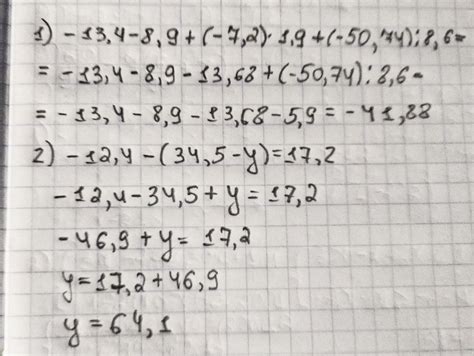 1) -13,4-8,9+(-7,2)·1,9+(-50,74):8,6=
= -13,4-8,9-13,68+(-50,74):8,6=
= -13,4-8,9-13,68-5,9=-41,88
2) -12,4-(34,5-y)=17,2
-12,4-34,5+y=17,2
-46,9+y=17,2
y=17,2+46,9
y=64,1